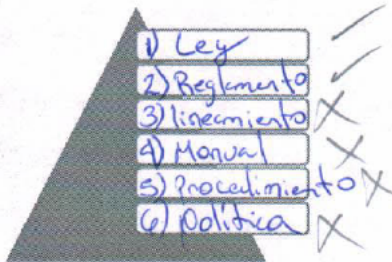 1) Ley
2) Reglamento
3) lineamiento
4) Manual
5) Procedimiento
6) Política